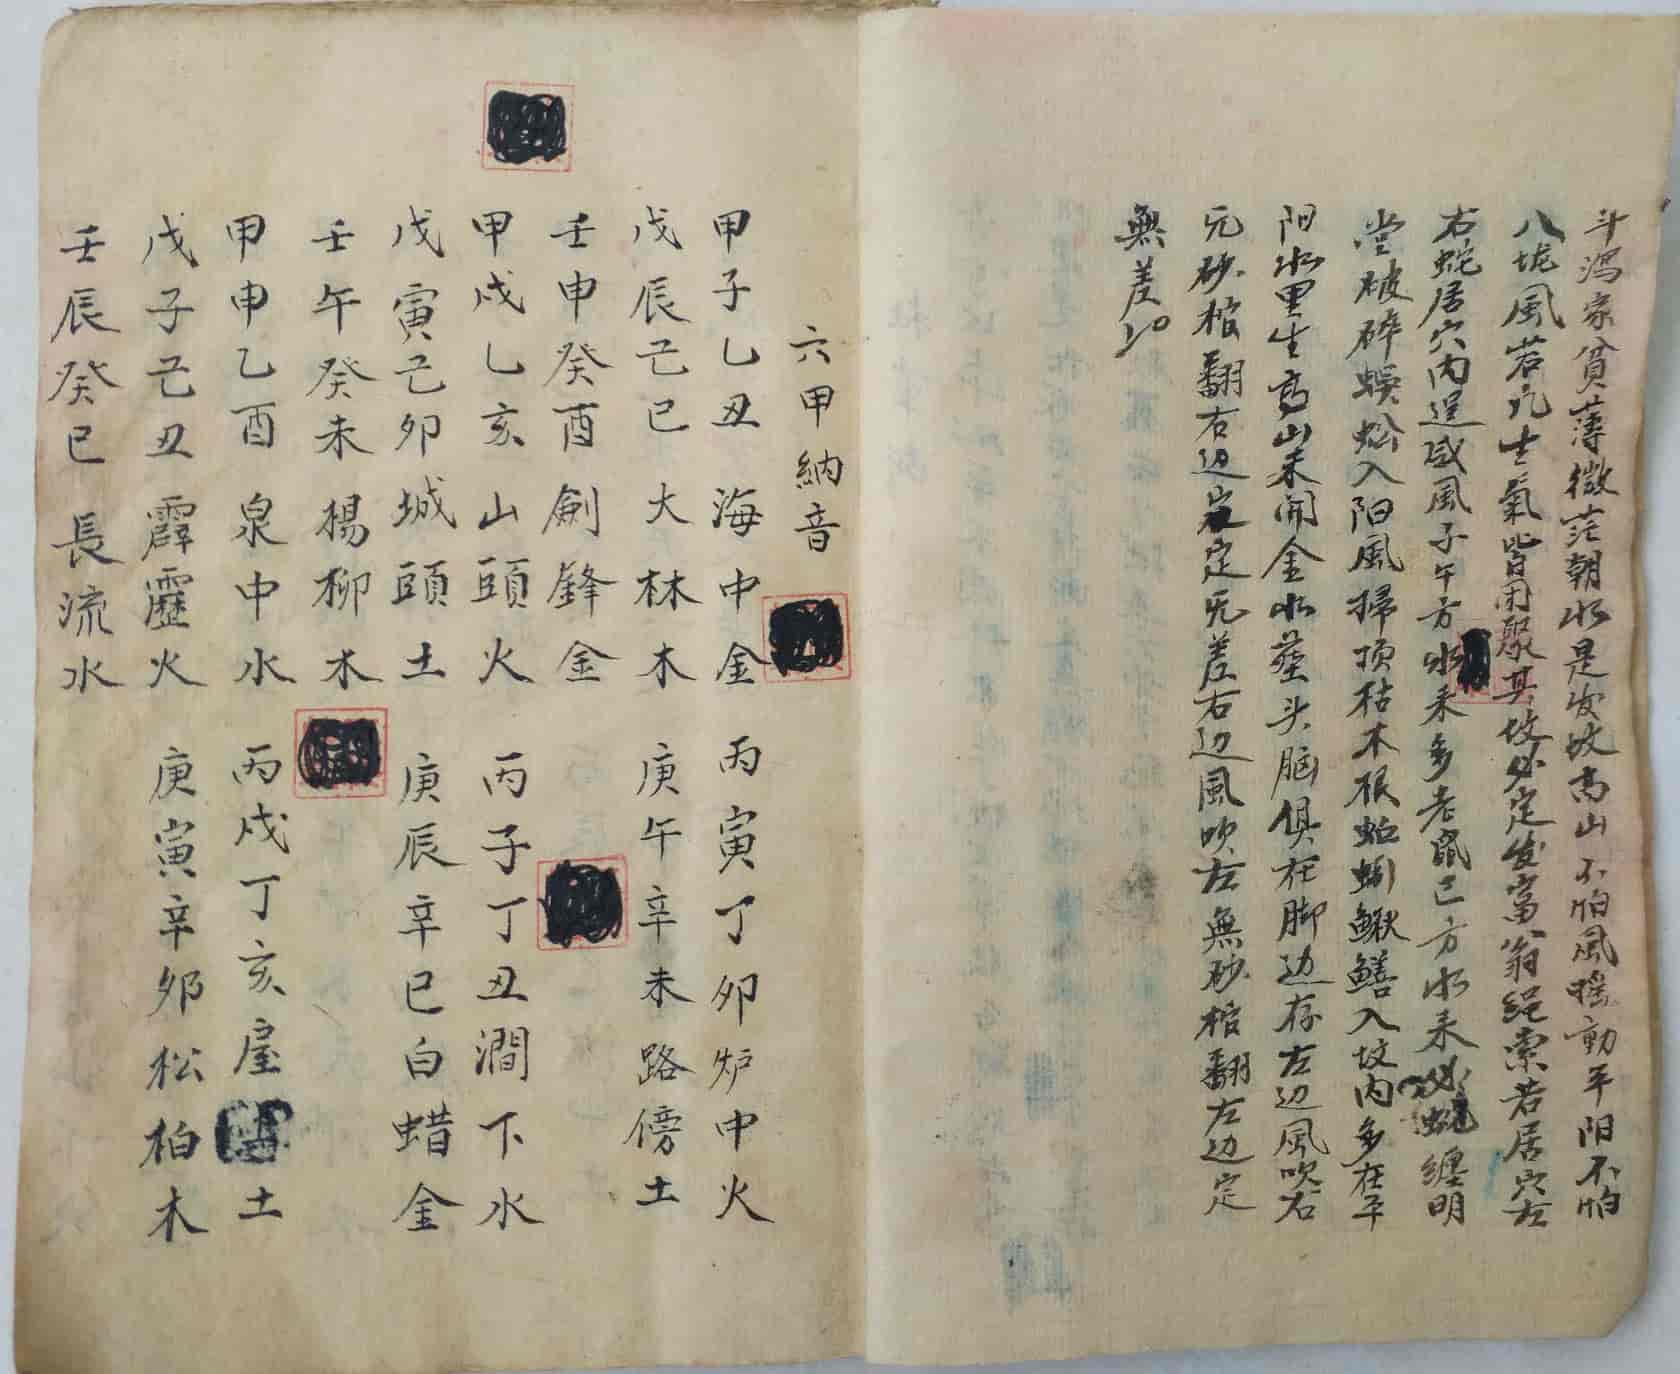 斗瀉家貧薄微茫朝水是发坟高山不怕風瑶動平阳不怕
八坭風若凡生氣皆用聚其坟必定发富翁繩索若居穴左
右蛇居穴内逞盛風子午方水来多老鼠巳方水来必蛇缠明
堂破碎蜈蚣入阳風掃頂枯木根蚯蝌鳅鱔入坟内多在平
阳水里生高山未開金水葬头脑俱在脚边存左边風吹右
无砂棺翻右边定无差右边風吹左無砂棺翻左边定
無差
六甲納音
甲子乙丑海中金 丙寅丁卯炉中火
戊辰己巳大林木 庚午辛未路傍土
壬申癸酉劍鋒金
甲戌乙亥山頭火 丙子丁丑澗下水
戊寅己卯城頭土 庚辰辛巳白蜡金
壬午癸未楊柳木
甲申乙酉泉中水 丙戌丁亥屋土
戊子己丑霹靂火 庚寅辛卯松柏木
壬辰癸巳長流水